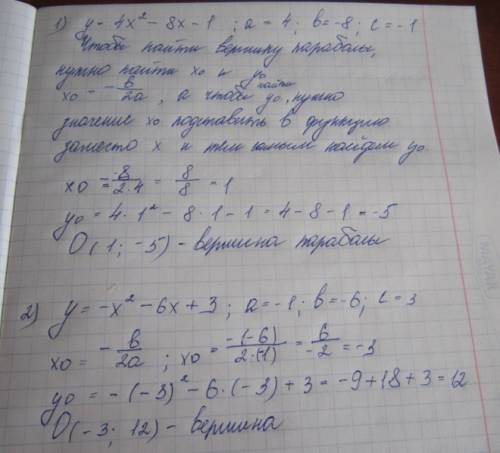 1) y = 4x² - 8x - 1 ; a = 4 ; b = -8 ; c = -1
Чтобы найти вершину параболы,
нужно найти x0 и y0
x0 = -b/2a , а чтобы найти y0, нужно
значение x0 подставить в функцию
заместо x и тем самым найдём y0
x0 = - -8/2·4 = 8/8 = 1
y0 = 4·1² - 8·1 - 1 = 4 - 8 - 1 = -5
O(1; -5) - вершина параболы
2) y = -x² - 6x + 3 ; a = -1 ; b = -6 ; c = 3
x0 = -b/2a ; x0 = -(-6)/2·(-1) = 6/-2 = -3
y0 = -(-3)² - 6·(-3) + 3 = -9 + 18 + 3 = 12
O(-3; 12) - вершина